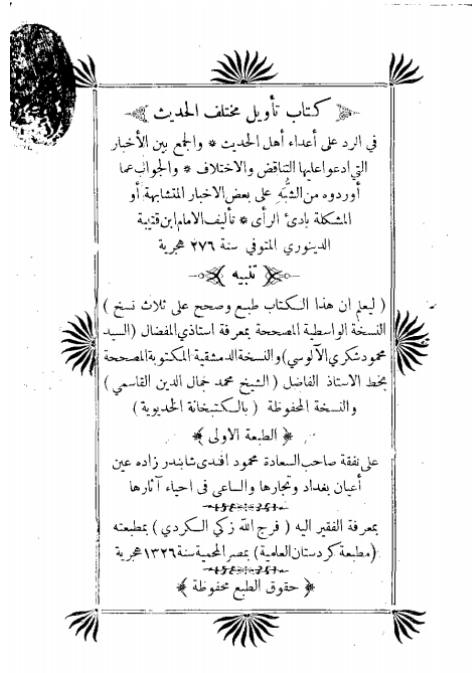 كتاب تأويل مختلف الحديث
في الرد على أعداء أهل الحديث * والجمع بين الأخبار
التي ادعوا عليها التناقض والاختلاف * والجواب عما
أوردوه من الشُّبَهِ على بعض الاخبار المتشابهة أو
المشكلة بادئ الرأى * تأليف الامام ابن قتيبة
الدينوري المتوفي سنة ٢٧٦ هجرية
تنبيه
( ليعلم ان هذا الكتاب طبع وصحح على ثلاث نسخ )
النسخة الواسطية المصححة بمعرفة استاذي المفضال (السيد
محمود شكري الآلوسي) والنسخة الدمشقية المكتوبة المصححة
بخط الاستاذ الفاضل ( الشيخ محمد جمال الدين القاسمي )
والنسخة المحفوظة ( بالكتبخانة الخديوية )
﴿ الطبعة الاولى ﴾
على نفقة صاحب السعادة محمود افندى شابندر زاده عين
أعيان بغداد وتجارها والساعى فى احياء آثارها
بمعرفة الفقير اليه ( فرج الله زكي الكردي ) بمطبعته
(مطبعة كردستان العلمية) بمصر المحمية سنة ١٣٢٦ هجرية
﴿ حقوق الطبع محفوظة ﴾